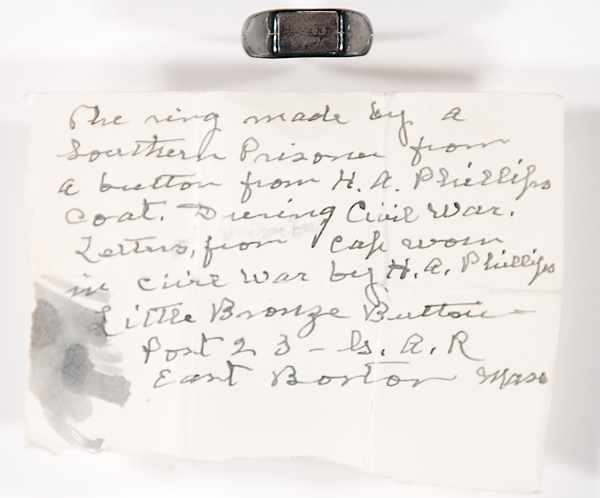 The ring made by a
Southern Prisoner from
a button from H. A. Phillips
coat. During Civil War.
Letters, from cap worn
in civil war by H. A. Phillips
Little Bronze Button
Post 23 – G. A. R
East Boston Mass